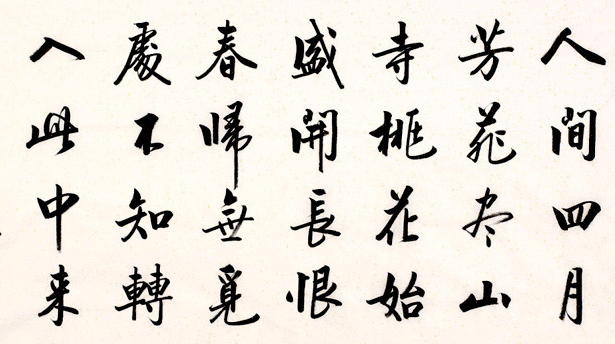 人間四月
芳菲尽山
寺桃花始
盛開長恨
春帰無覓
處不知轉
入此中来